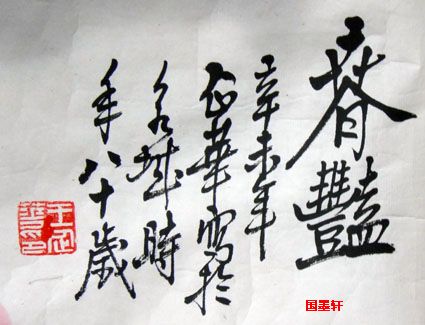 春豔
辛未年
企華寫於
石城時
年八十歲
王企華印
国墨轩